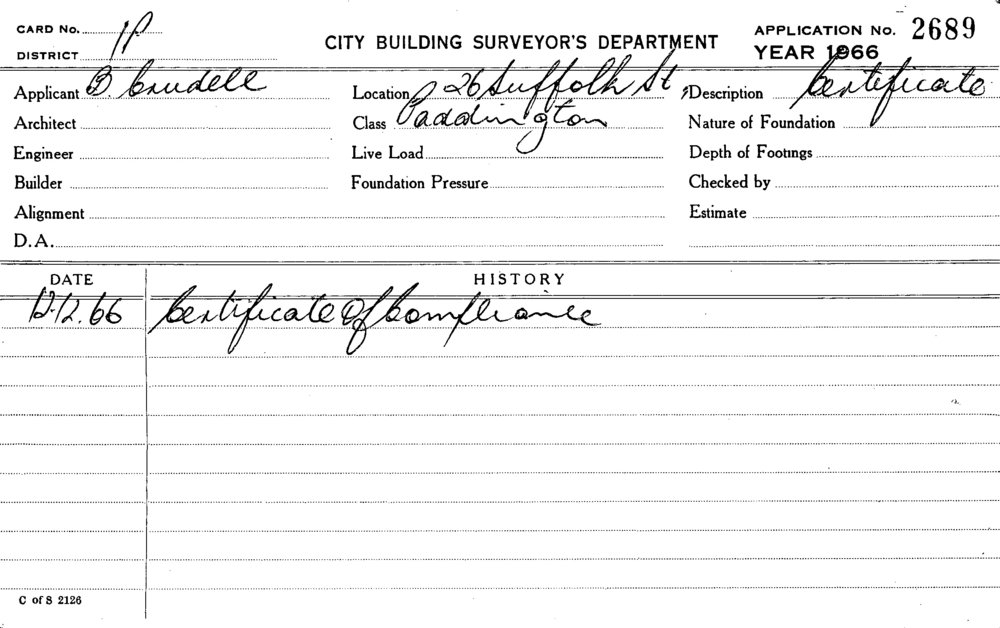 CARD No. 1P
DISTRICT
CITY BUILDING SURVEYOR'S DEPARTMENT
APPLICATION No. 2689
YEAR 1966
Applicant B. Crudell Location 26 Suffolk St, Description Certificate
Architect Class Paddington Nature of Foundation
Engineer Live Load Depth of Footings
Builder Foundation Pressure Checked by
Alignment Estimate
D.A.
DATE HISTORY
12.12.66 Certificate Of Compliance
C of S 2126